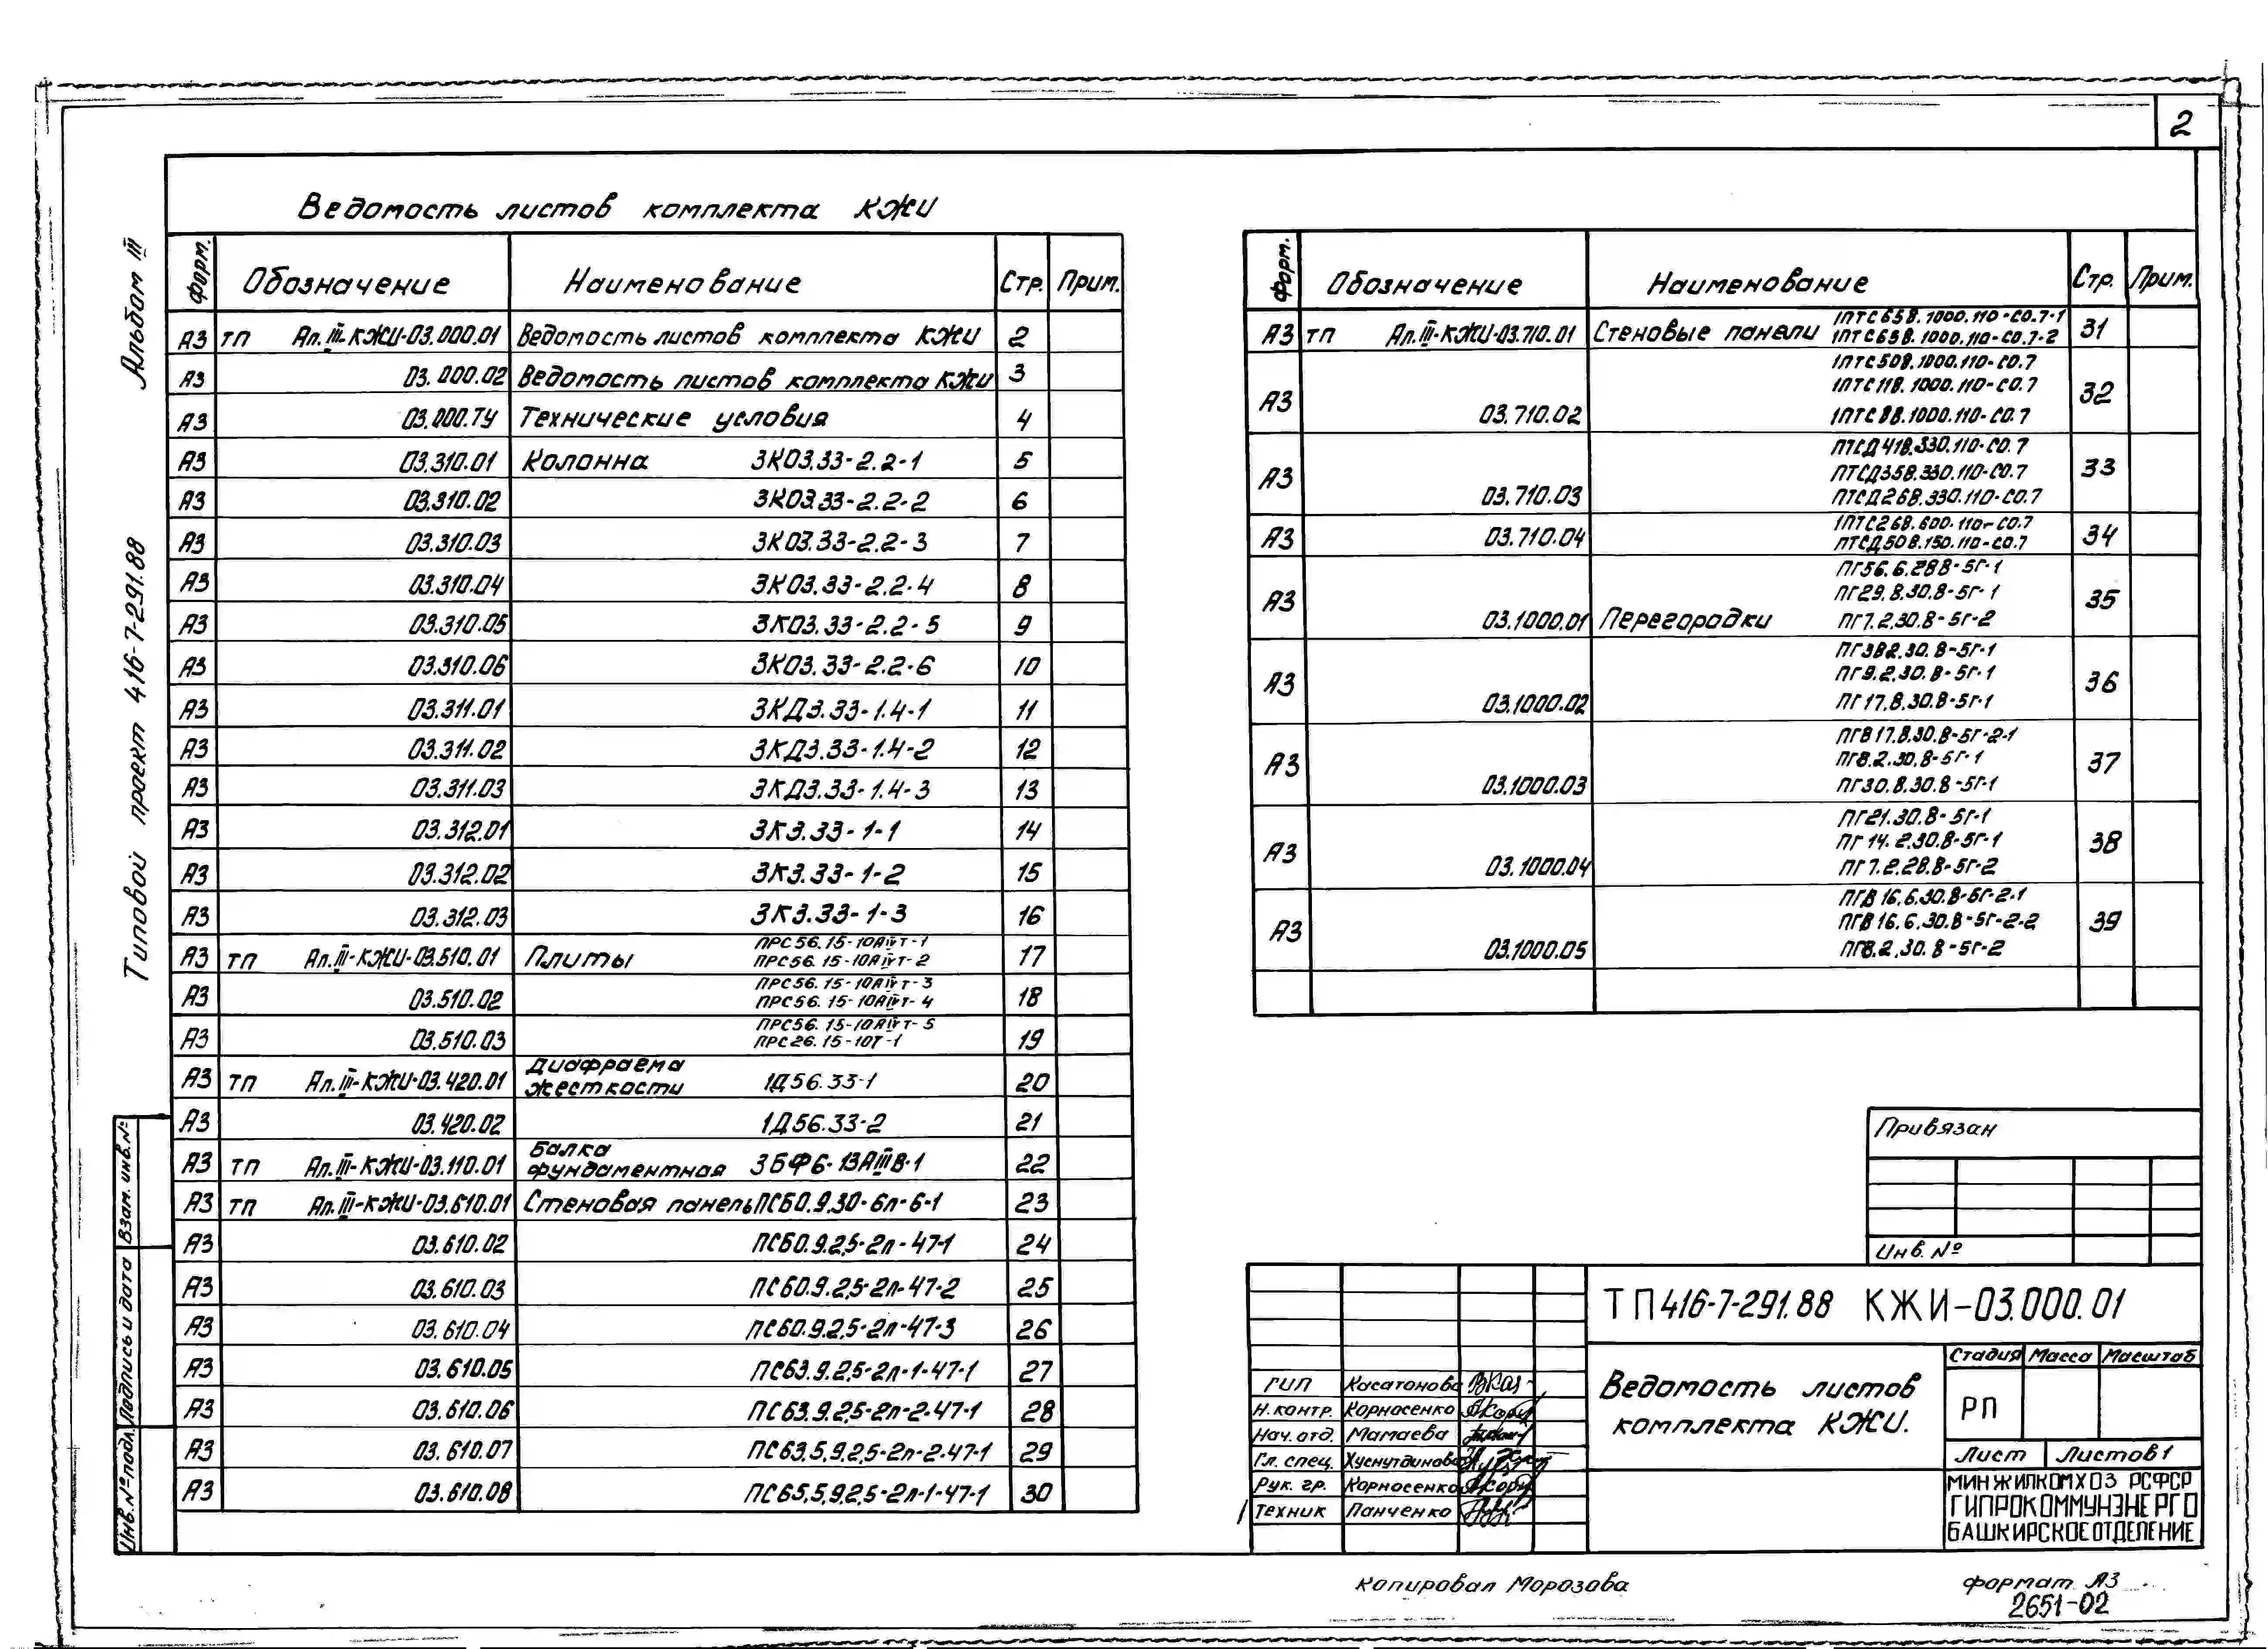 2
Альбом III
Типовой проект 416-7-291.88
Взам. инв.№
Подпись и дата
Инв.№подл.
Ведомость листов комплекта КЖИ
Форм. Обозначение Наименование Стр. Прим.
А3 ТП Ал.III-КЖИ-03.000.01 Ведомость листов комплекта КЖИ 2
А3 03.000.02 Ведомость листов комплекта КЖИ 3
А3 03.000.ТУ Технические условия 4
А3 03.310.01 Колонна 3К03.33-2.2-1 5
А3 03.310.02 3К03.33-2.2-2 6
А3 03.310.03 3К03.33-2.2-3 7
А3 03.310.04 3К03.33-2.2-4 8
А3 03.310.05 3К03.33-2.2-5 9
А3 03.310.06 3К03.33-2.2-6 10
А3 03.311.01 3КД3.33-1.4-1 11
А3 03.311.02 3КД3.33-1.4-2 12
А3 03.311.03 3КД3.33-1.4-3 13
А3 03.312.01 3К3.33-1-1 14
А3 03.312.02 3К3.33-1-2 15
А3 03.312.03 3К3.33-1-3 16
А3 ТП Ал.III-КЖИ-03.510.01 Плиты ПРС56.15-10АIVТ-1 17
ПРС56.15-10АIVТ-2
А3 03.510.02 ПРС56.15-10АIVТ-3 18
ПРС56.15-10АIVТ-4
А3 03.510.03 ПРС56.15-10АIVТ-5 19
ПРС26.15-10Т-1
А3 ТП Ал.III-КЖИ-03.420.01 Диафрагма
жесткости 1Д56.33-1 20
А3 03.420.02 1Д56.33-2 21
Балка
А3 ТП Ал.III-КЖИ-03.110.01 фундаментная 3БФ6-13АIIIВ-1 22
А3 ТП Ал.III-КЖИ-03.610.01 Стеновая панель ПС60.9.30-6л-6-1 23
А3 03.610.02 ПС60.9.2,5-2л-47-1 24
А3 03.610.03 ПС60.9.2,5-2л-47-2 25
А3 03.610.04 ПС60.9.2,5-2л-47-3 26
А3 03.610.05 ПС63.9.2,5-2л-1-47-1 27
А3 03.610.06 ПС63.9.2,5-2л-2-47-1 28
А3 03.610.07 ПС63,5.9.2,5-2л-2-47-1 29
А3 03.610.08 ПС65,5.9.2,5-2л-1-47-1 30
Форм. Обозначение Наименование Стр. Прим.
1ПТС658.1000.110-С0.7-1
А3 ТП Ал.III-КЖИ-03.710.01 Стеновые панели 1ПТС658.1000.110-С0.7-2 31
1ПТС508.1000.110-С0.7
1ПТС118.1000.110-С0.7
А3 03.710.02 1ПТС88.1000.110-С0.7 32
ПТСД418.330.110-С0.7
ПТСД358.330.110-С0.7
А3 03.710.03 ПТСД268.330.110-С0.7 33
1ПТС268.600.110-С0.7
А3 03.710.04 ПТСД508.150.110-С0.7 34
ПГ56.6.28В-5Г-1
ПГ29.8.30.8-5Г-1
А3 03.1000.01 Перегородки ПГ7.2.30.8-5Г-2 35
ПГ382.30.8-5Г-1
ПГ9.2.30.8-5Г-1
А3 03.1000.02 ПГ17.8.30.8-5Г-1 36
ПГВ17.8.30.8-5Г-2-1
ПГ8.2.30.8-5Г-1
А3 03.1000.03 ПГ30.8.30.8-5Г-1 37
ПГ21.30.8-5Г-1
ПГ14.2.30.8-5Г-1
А3 03.1000.04 ПГ7.2.28.8-5Г-2 38
ПГВ16.6.30.8-5Г-2-1
ПГВ16.6.30.8-5Г-2-2
А3 03.1000.05 ПГ8.2.30.8-5Г-2 39
Привязан
Инв.№
ТП416-7-291.88 КЖИ-03.000.01
Ведомость листов
комплекта КЖИ.
Стадия Масса Масштаб
РП
Лист Листов 1
МИНЖИЛКОМХОЗ РСФСР
ГИПРОКОММУНЭНЕРГО
БАШКИРСКОЕ ОТДЕЛЕНИЕ
ГИП Касатонова
Н.контр. Корнасенко
Нач.отд. Мамаева
Гл.спец. Хуснутдинова
Рук.гр. Корнасенко
Техник Панченко
Копировал Морозова
Формат А3
2651-02